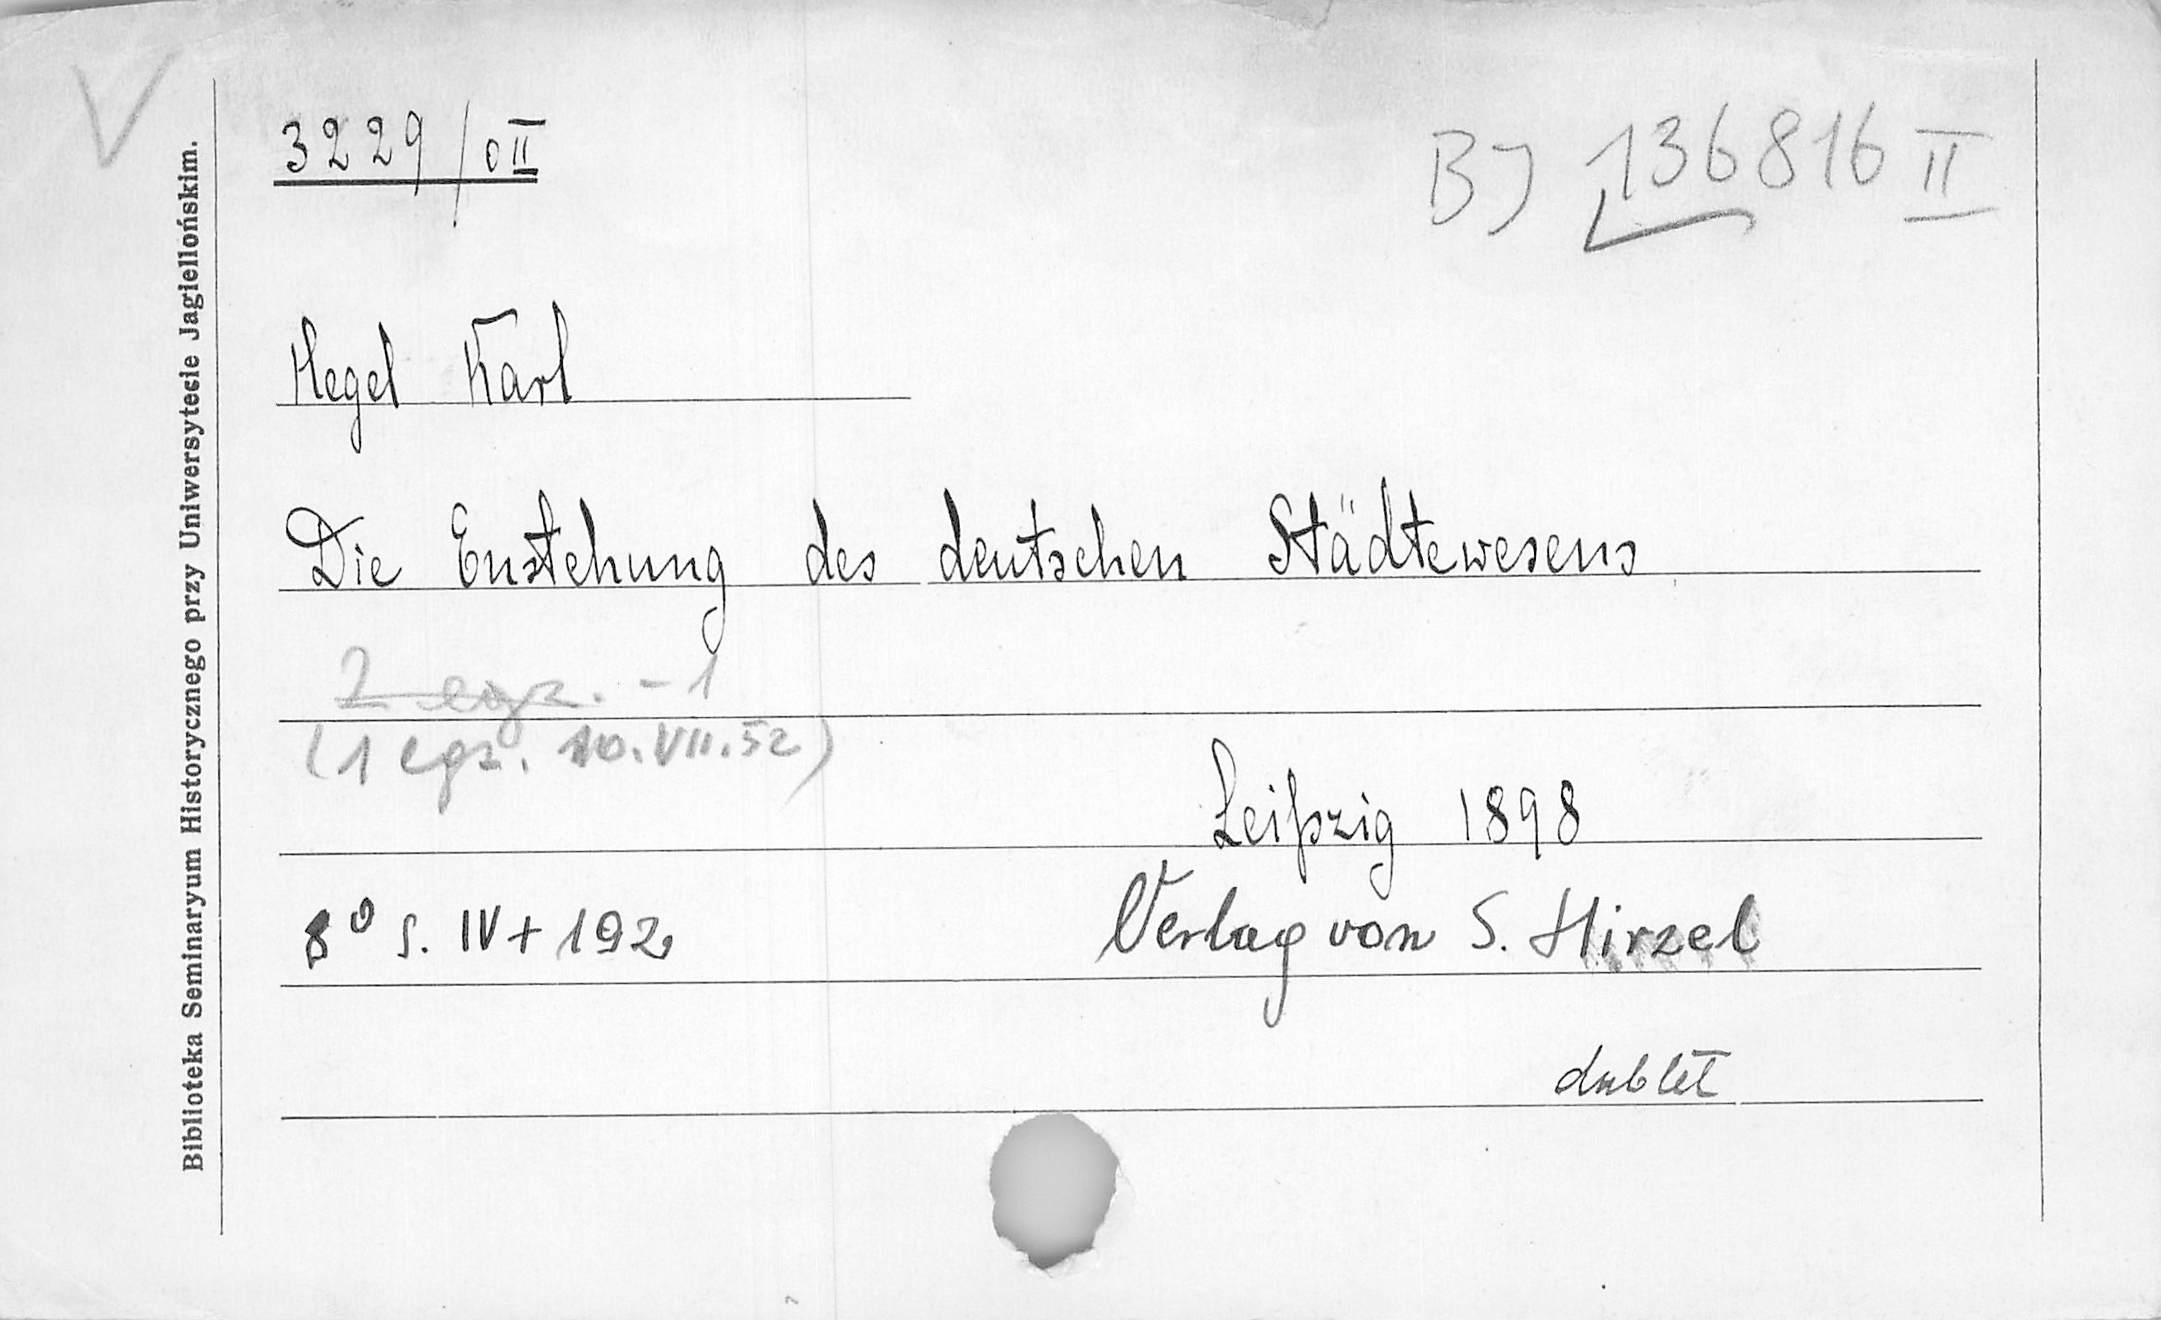 V
3229/0II
BJ 136816 II
Hegel Karl
Die Enstehung des deutschen Städtewesens
2 egz. - 1
(1 egz. 10.VII.52)
Leipzig 1898
8° s. IV + 192
Verlag von S. Hirzel
dublet
Biblioteka Seminaryum Historycznego przy Uniwersytecie Jagiellońskim.